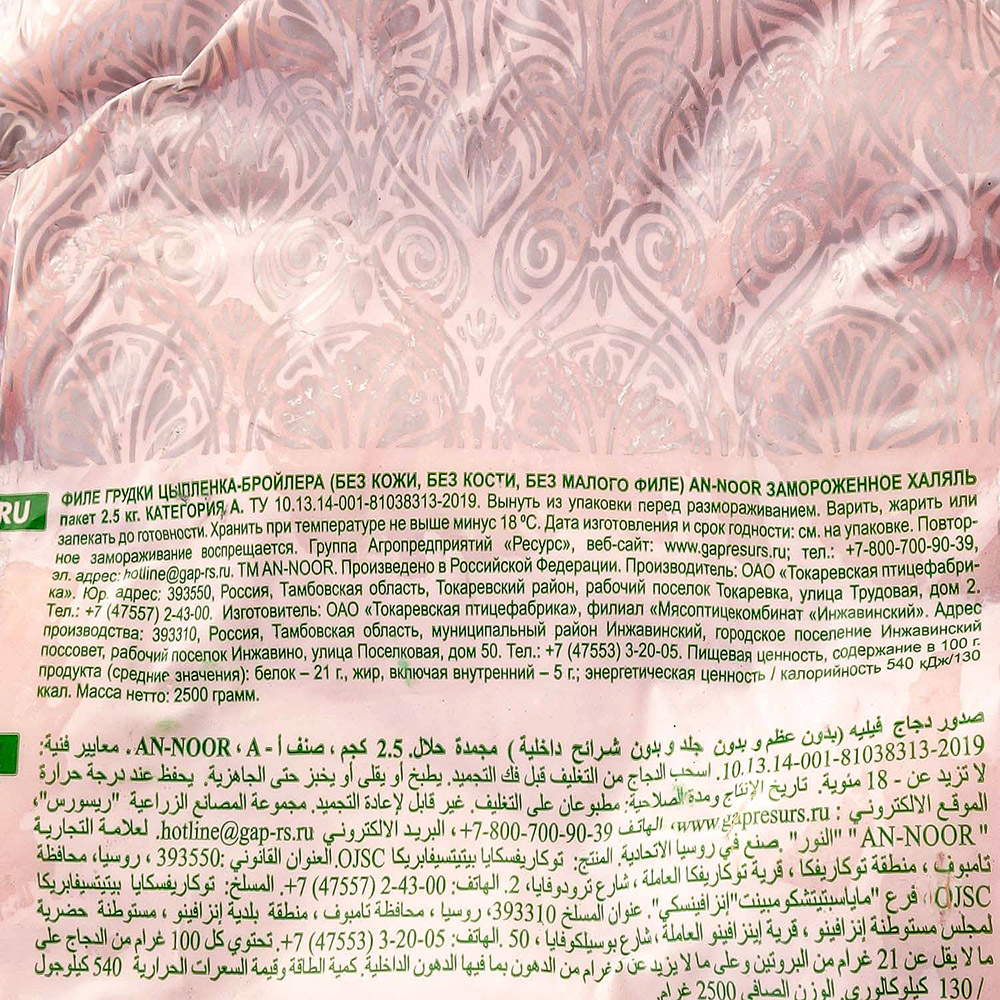 RU
ФИЛЕ ГРУДКИ ЦЫПЛЕНКА-БРОЙЛЕРА (БЕЗ КОЖИ, БЕЗ КОСТИ, БЕЗ МАЛОГО ФИЛЕ) AN-NOOR ЗАМОРОЖЕННОЕ ХАЛЯЛЬ
пакет 2.5 кг. КАТЕГОРИЯ А. ТУ 10.13.14-001-81038313-2019. Вынуть из упаковки перед размораживанием. Варить, жарить или
запекать до готовности. Хранить при температуре не выше минус 18 °C. Дата изготовления и срок годности: см. на упаковке. Повтор-
ное замораживание воспрещается. Группа Агропредприятий «Ресурс», веб-сайт: www.gapresurs.ru; тел.: +7-800-700-90-39,
эл. адрес: hotline@gap-rs.ru. ТМ AN-NOOR. Произведено в Российской Федерации. Производитель: ОАО «Токаревская птицефабри-
ка». Юр. адрес: 393550, Россия, Тамбовская область, Токаревский район, рабочий поселок Токаревка, улица Трудовая, дом 2.
Тел.: +7 (47557) 2-43-00. Изготовитель: ОАО «Токаревская птицефабрика», филиал «Мясоптицекомбинат «Инжавинский». Адрес
производства: 393310, Россия, Тамбовская область, муниципальный район Инжавинский, городское поселение Инжавинский
поссовет, рабочий поселок Инжавино, улица Поселковая, дом 50. Тел.: +7 (47553) 3-20-05. Пищевая ценность, содержание в 100 г.
продукта (средние значения): белок – 21 г., жир, включая внутренний – 5 г.; энергетическая ценность / калорийность 540 кДж/130
ккал. Масса нетто: 2500 грамм.
صدور دجاج فيليه (بدون عظم و بدون جلد و بدون شرائح داخلية) مجمدة حلال. 2.5 كجم ، صنف أ - AN-NOOR ، A . معايير فنية:
10.13.14-001-81038313-2019. اسحب الدجاج من التغليف قبل فك التجميد. يطبخ أو يقلى أو يخبز حتى الجاهزية. يحفظ عند درجة حرارة
لا تزيد عن - 18 مئوية. تاريخ الإنتاج ومدة الصلاحية: مطبوعان على التغليف. غير قابل لإعادة التجميد. مجموعة المصانع الزراعية "ريسورس"،
الموقع الالكتروني : www.gapresurs.ru، الهاتف 39-90-700-800-7+، البريد الالكتروني hotline@gap-rs.ru. لعلامة التجارية
" AN-NOOR" "النور" .صنع في روسيا الاتحادية. المنتج: توكاريفسكايا بيتيتسيفابريكا OJSC. العنوان القانوني :393550 ، روسيا، محافظة
تامبوف ، منطقة توكاريفكا ، قرية توكاريفكا العاملة ، شارع ترودوفايا، 2. الهاتف: 00-43-2 (47557) 7+. المسلخ: توكاريفسكايا بيتيتسيفابريكا
OJSC ، فرع "ماياسبتيتشكومبينت"إنزافينسكي". عنوان المسلخ 393310، روسيا ، محافظة تامبوف ، منطقة بلدية إنزافينو ، مستوطنة حضرية
لمجلس مستوطنة إنزافينو ، قرية إينزافينو العاملة ، شارع بوسيلكوفايا ، 50 .الهاتف: 05-20-3 (47553) 7+. تحتوي كل 100 غرام من الدجاج على
ما لا يقل عن 21 غرام من البروتين وعلى ما لا يزيد عن غرام من الدهون بما فيها الدهون الداخلية. كمية الطاقة وقيمة السعرات الحرارية 540 كيلوجول
/ 130 كيلوكالوري. الوزن الصافي 2500 غرام.